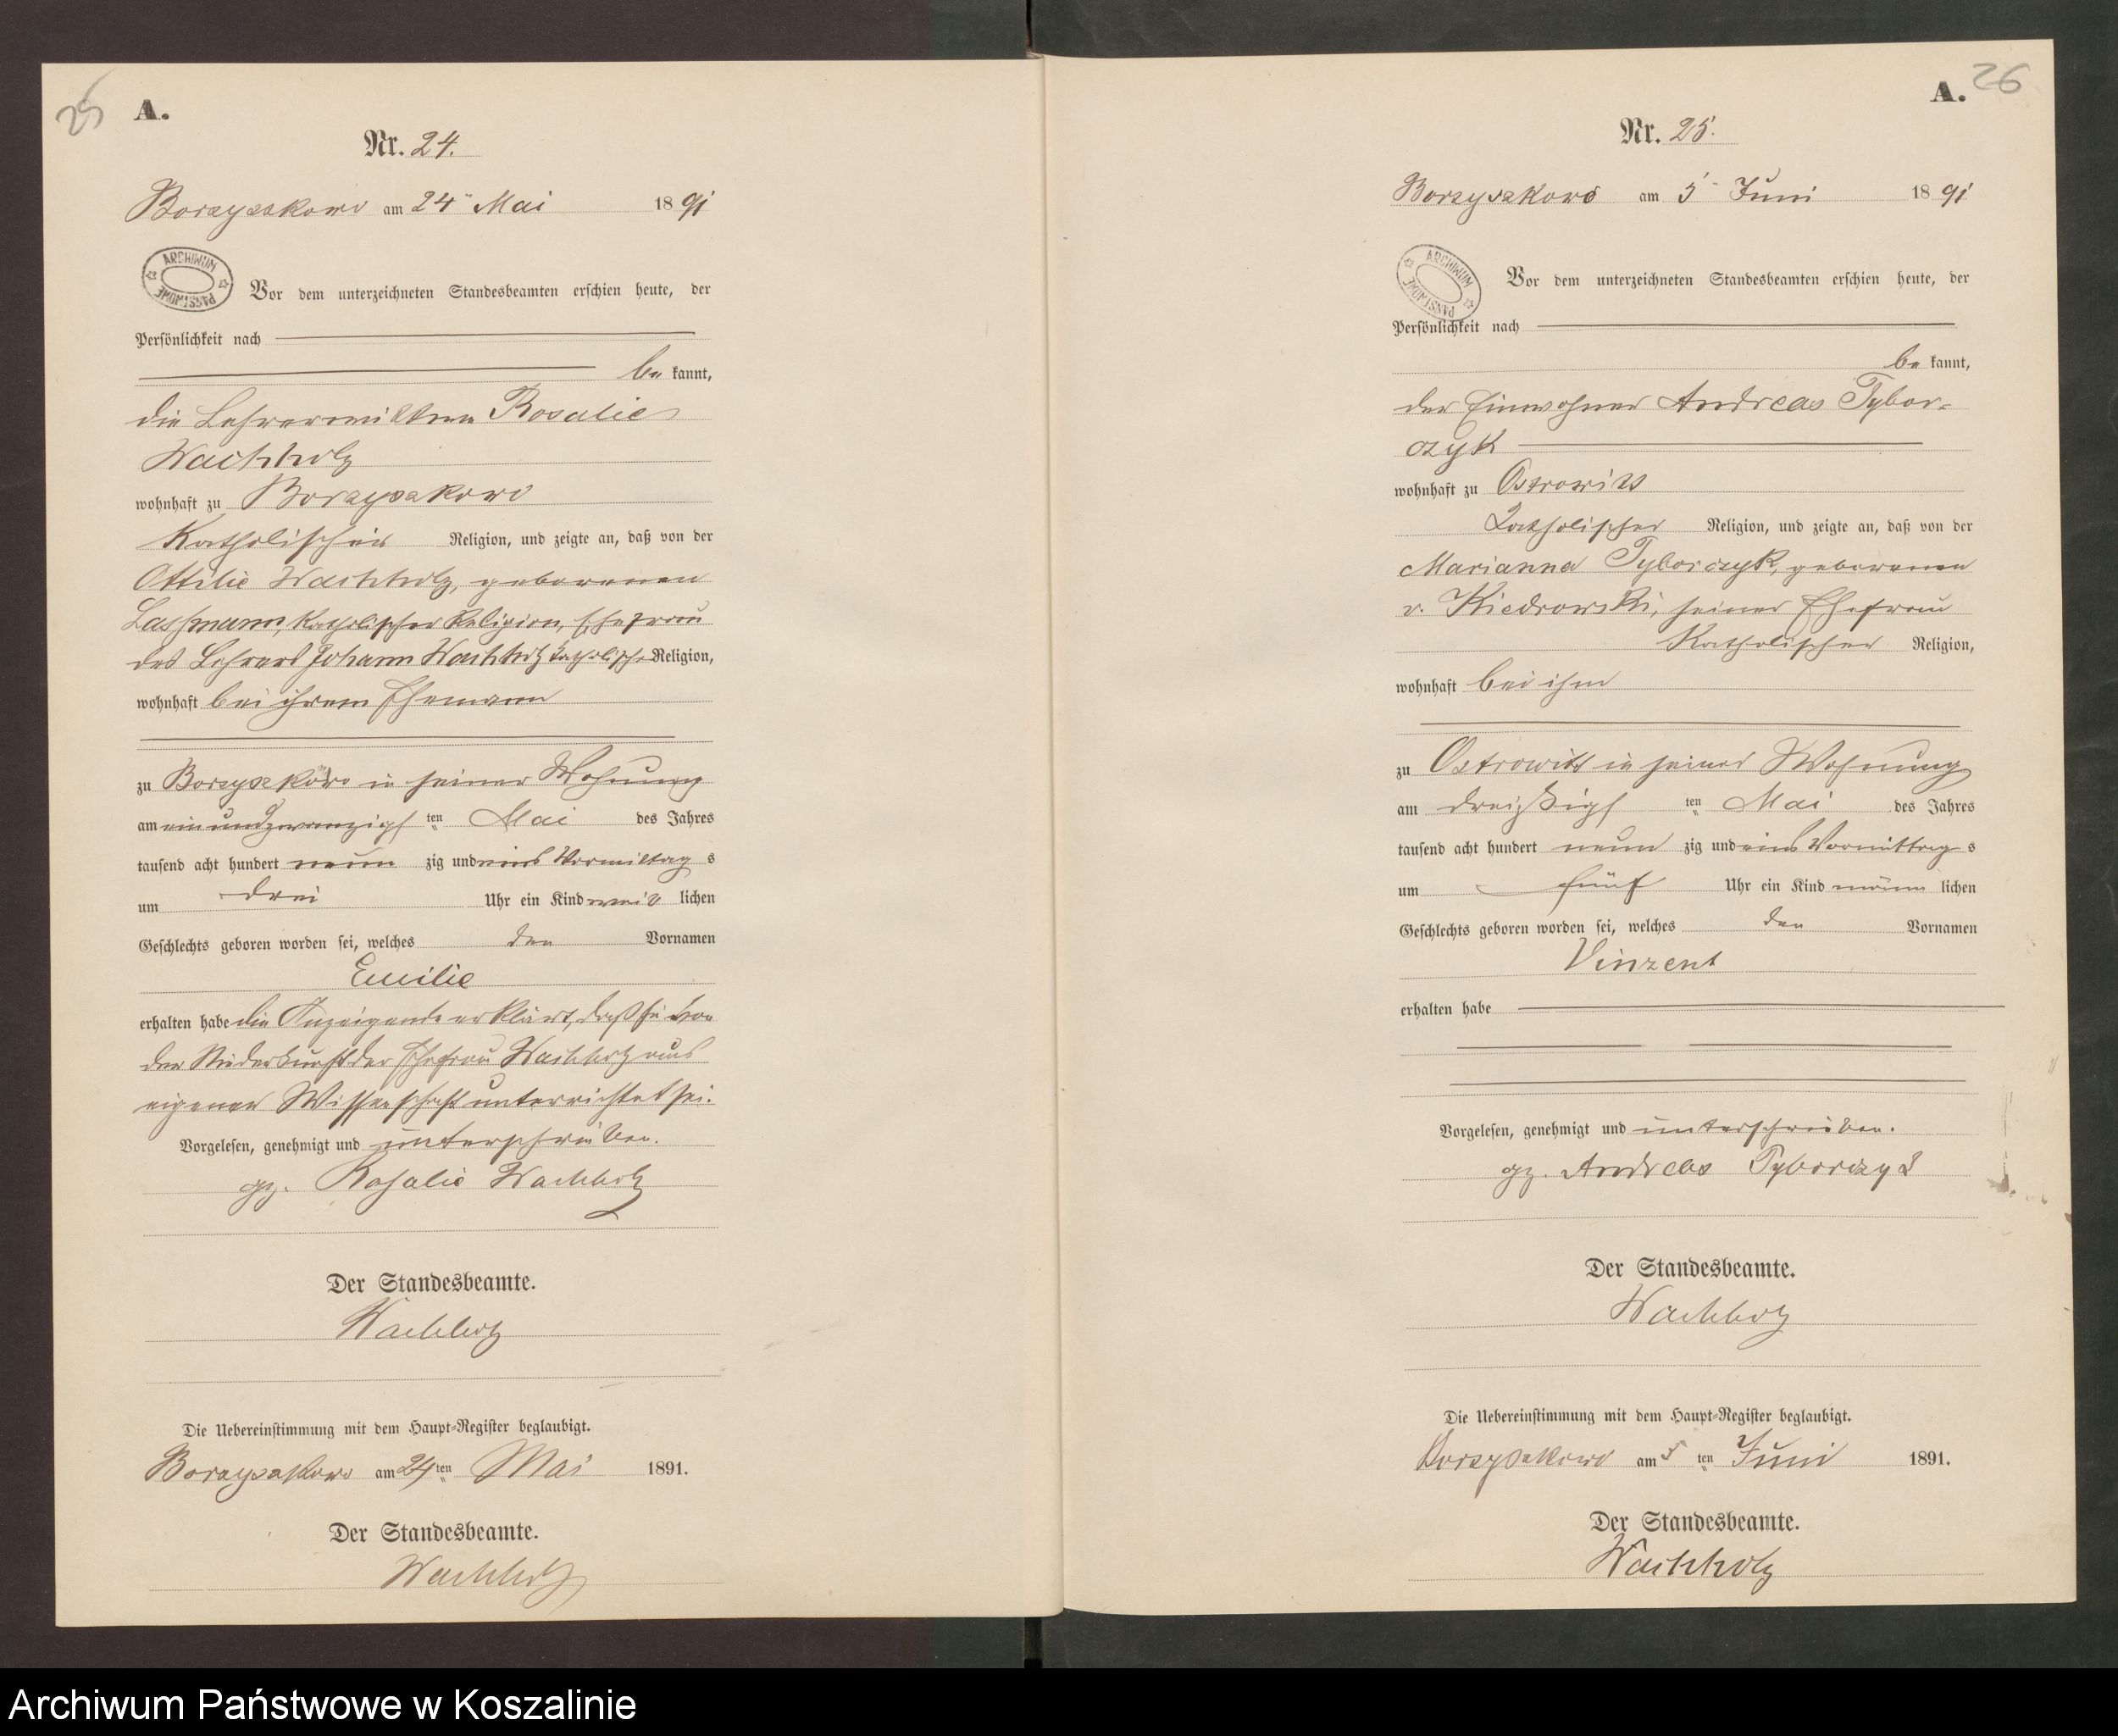 25
A.
Nr. 24.
Borzyszkowo am 24ten Mai 1891
ARCHIWUM PAŃSTWOWE
Vor dem unterzeichneten Standesbeamten erschien heute, der
Persönlichkeit nach
be kannt,
die Lehrerwittwe Rosalie
Wachholz
wohnhaft zu Borzyszkowo
Katholischer Religion, und zeigte an, daß von der
Ottilie Wachholz, geborenen
Laszmann, katholischer Religion, Ehefrau
des Lehrers Johann Wachholz katholischer Religion,
wohnhaft bei ihrem Ehemann
zu Borzyszkowo in seiner Wohnung
am einundzwanzigsten Mai des Jahres
tausend acht hundert neun zig und eins Vormittag s
um drei Uhr ein Kind weib lichen
Geschlechts geboren worden sei, welches den Vornamen
Emilie
erhalten habe die Anzeigende erklärt, daß sie von
der Niederkunft der Ehefrau Wachholz aus
eigener Wissenschaft unterrichtet sei.
Vorgelesen, genehmigt und unterschrieben.
gz. Rosalie Wachholz
Der Standesbeamte.
Wachholz
Die Uebereinstimmung mit dem Haupt-Register beglaubigt.
Borzyszkowo am 24ten Mai 1891.
Der Standesbeamte.
Wachholz
A. 26
Nr. 25.
Borzyszkowo am 5ten Juni 1891
ARCHIWUM PAŃSTWOWE
Vor dem unterzeichneten Standesbeamten erschien heute, der
Persönlichkeit nach
be kannt,
der Einwohner Andreas Tybor-
czyk
wohnhaft zu Ostrowitt
Katholischer Religion, und zeigte an, daß von der
Marianna Tyborczyk, geborenen
v. Kiedrowski, seiner Ehefrau
Katholischer Religion,
wohnhaft bei ihm
zu Ostrowitt in seiner Wohnung
am dreizsigsten Mai des Jahres
tausend acht hundert neun zig und eins Vormittag s
um fünf Uhr ein Kind männ lichen
Geschlechts geboren worden sei, welches den Vornamen
Vinzent
erhalten habe
Vorgelesen, genehmigt und unterschrieben.
gz. Andreas Tyborczyk
Der Standesbeamte.
Wachholz
Die Uebereinstimmung mit dem Haupt-Register beglaubigt.
Borzyszkowo am 5ten Juni 1891.
Der Standesbeamte.
Wachholz
Archiwum Państwowe w Koszalinie